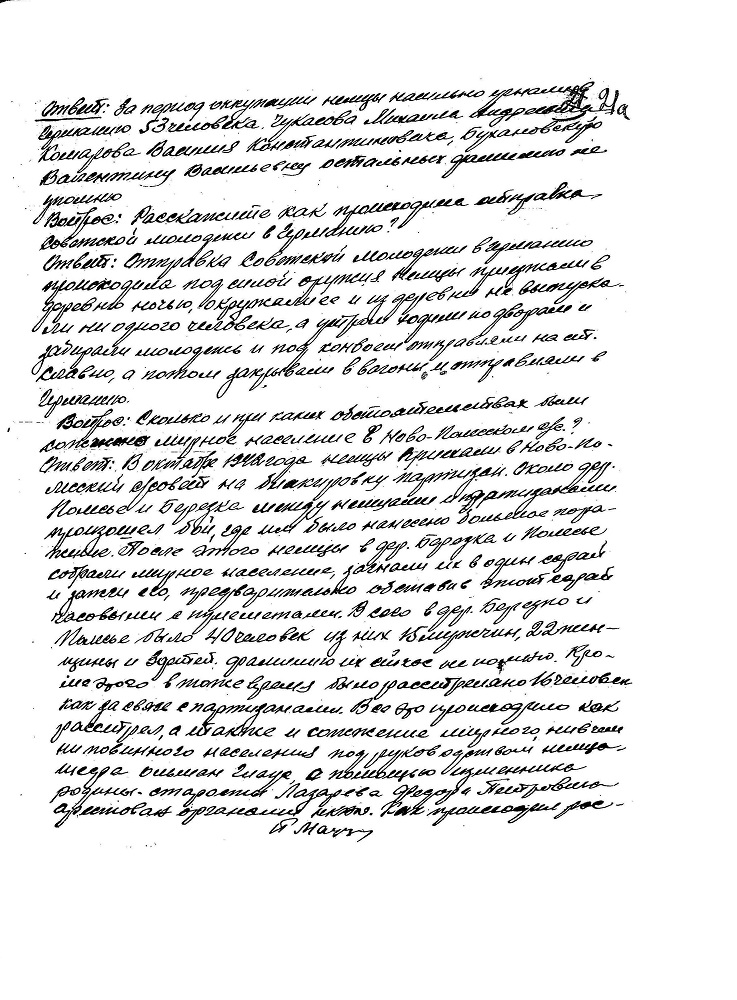 21а
Ответ: За период оккупации немцы насильно угнали в
Германию 53 человека. Чукасова Михаила Андреевича
Комарова Василия Константиновича, Бухановскую
Валентину Васильевну остальных фамилию не
упомню
Вопрос: Расскажите как происходила отправка
Советской молодежи в Германию?
Ответ: Отправка Советской молодежи в Германию
происходила под силой оружия Немцы приезжали в
деревню ночью, окружали ее и из деревни не выпуска-
ли ни одного человека, а утром ходили по дворам и
забирали молодежь и под конвоем отправляли на ст.
Славно, а потом закрывали в вагоны и отправляли в
Германию.
Вопрос: Сколько и при каких обстоятельствах были
сожжено мирное население в Ново-Полесском с/с.?
Ответ: В октябре 1942 года немцы приехали в Ново-По-
лесский с/совет на блокировку партизан. Около дер.
Полесье и Березка между немцами и партизанами
произошел бой, где им было нанесено большое пора-
жение. После этого немцы в дер. Березка и Полесье
собрали мирное население, загнали их в один сарай
и зажгли его, предварительно обставив этот сарай
часовыми с пулеметами. Всего в дер. Березка и
Полесье было 40 человек из них 15 мужчин, 22 жен-
щины и 3 детей. фамилию их сейчас не помню. Кро-
ме этого в тоже время было расстреляно 16 человек
как за связь с партизанами. Все это происходило как
расстрел, а также и сожжение мирного, ни в чем
ни повинного населения под руководством немца
Глаук, с помощью изменника
родины- старосты Лазарева Федора Петровича
арестован органами НКГБ. Как происходил рас-